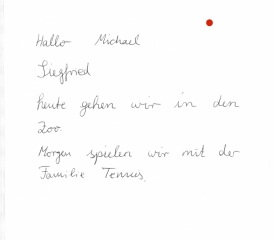 Hallo Michael
Siegfried
heute gehen wir in den
Zoo.
Morgen spielen wir mit der
Familie Tennis.